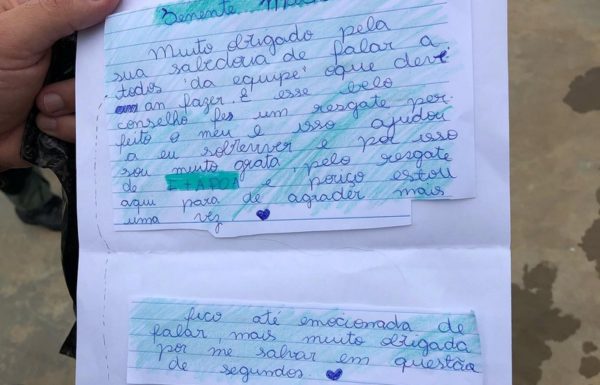 Tenente
Muito obrigado pela
sua sabedoria de falar a
todos 'da equipe' oque deve
an fazer. E esse belo
conselho fes um resgate per-
feito o meu e isso ajudou
a eu sobreviver e por isso
sou muito grata, pelo resgate
de e pouço estou
aqui para de agrader mais
uma vez
fico até emocionada de
falar, mais muito obrigada
por me salvar em questão
de segundos.